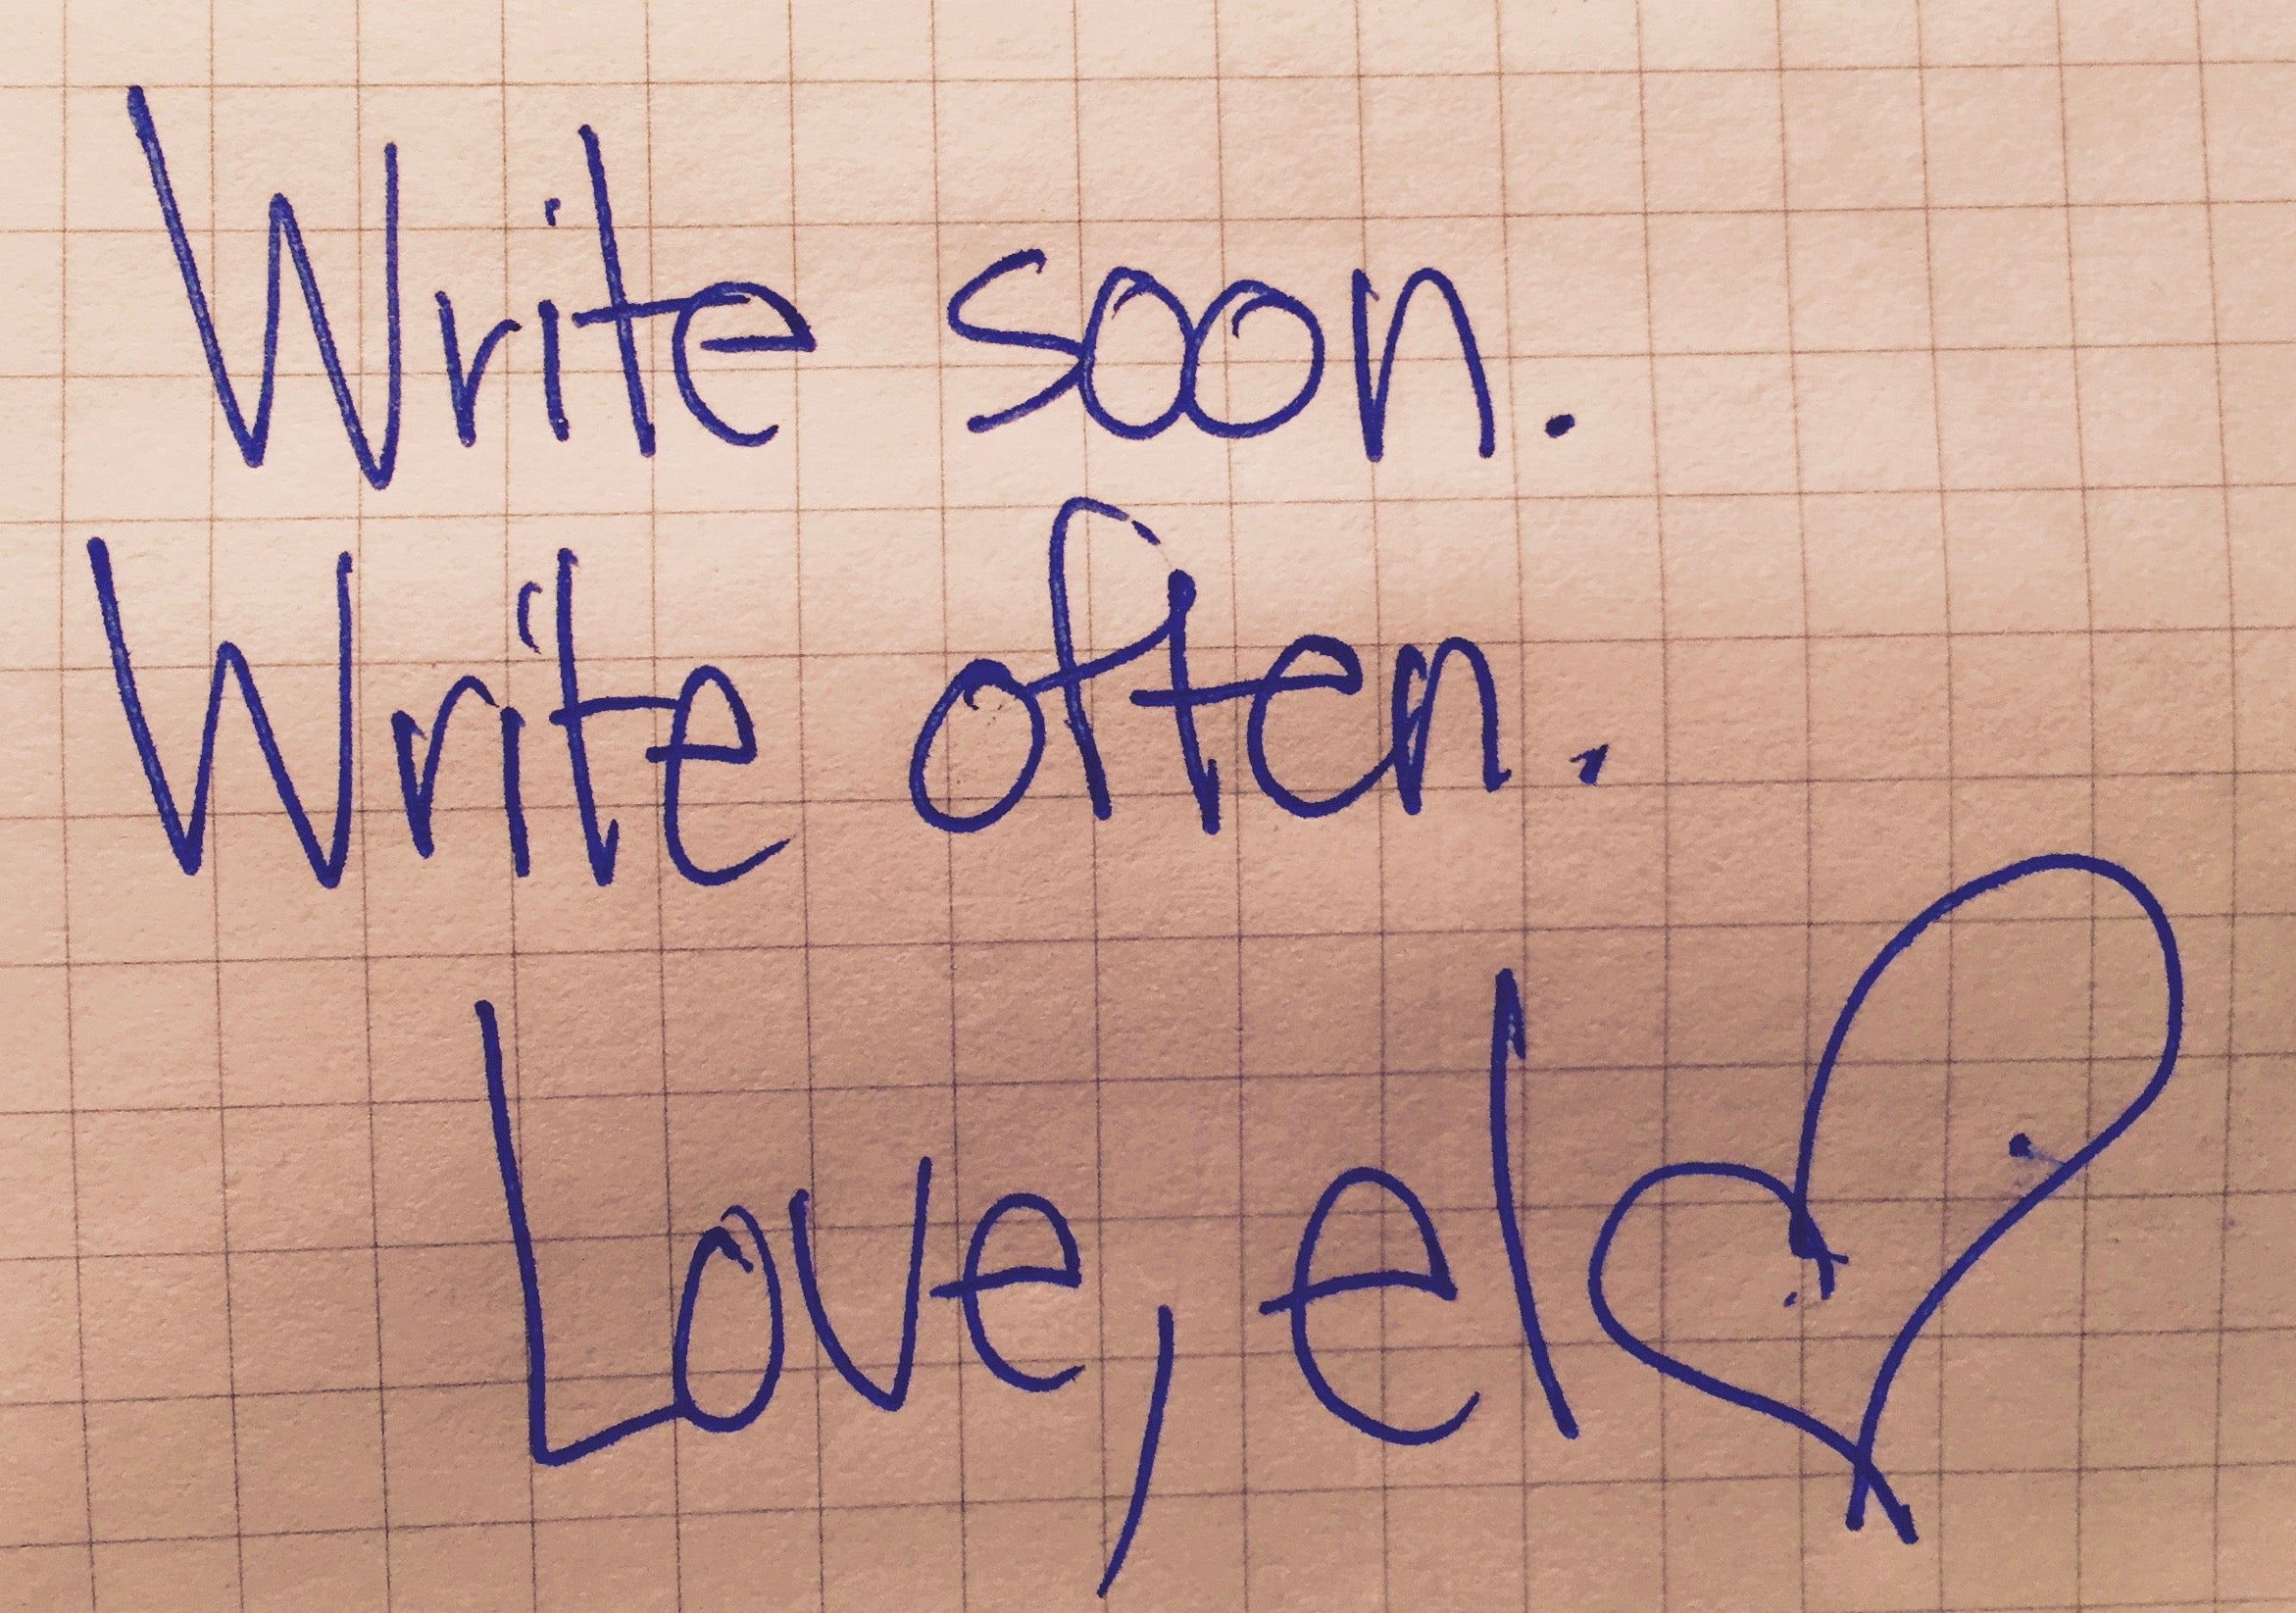 Write soon.
Write often.
Love, el♡